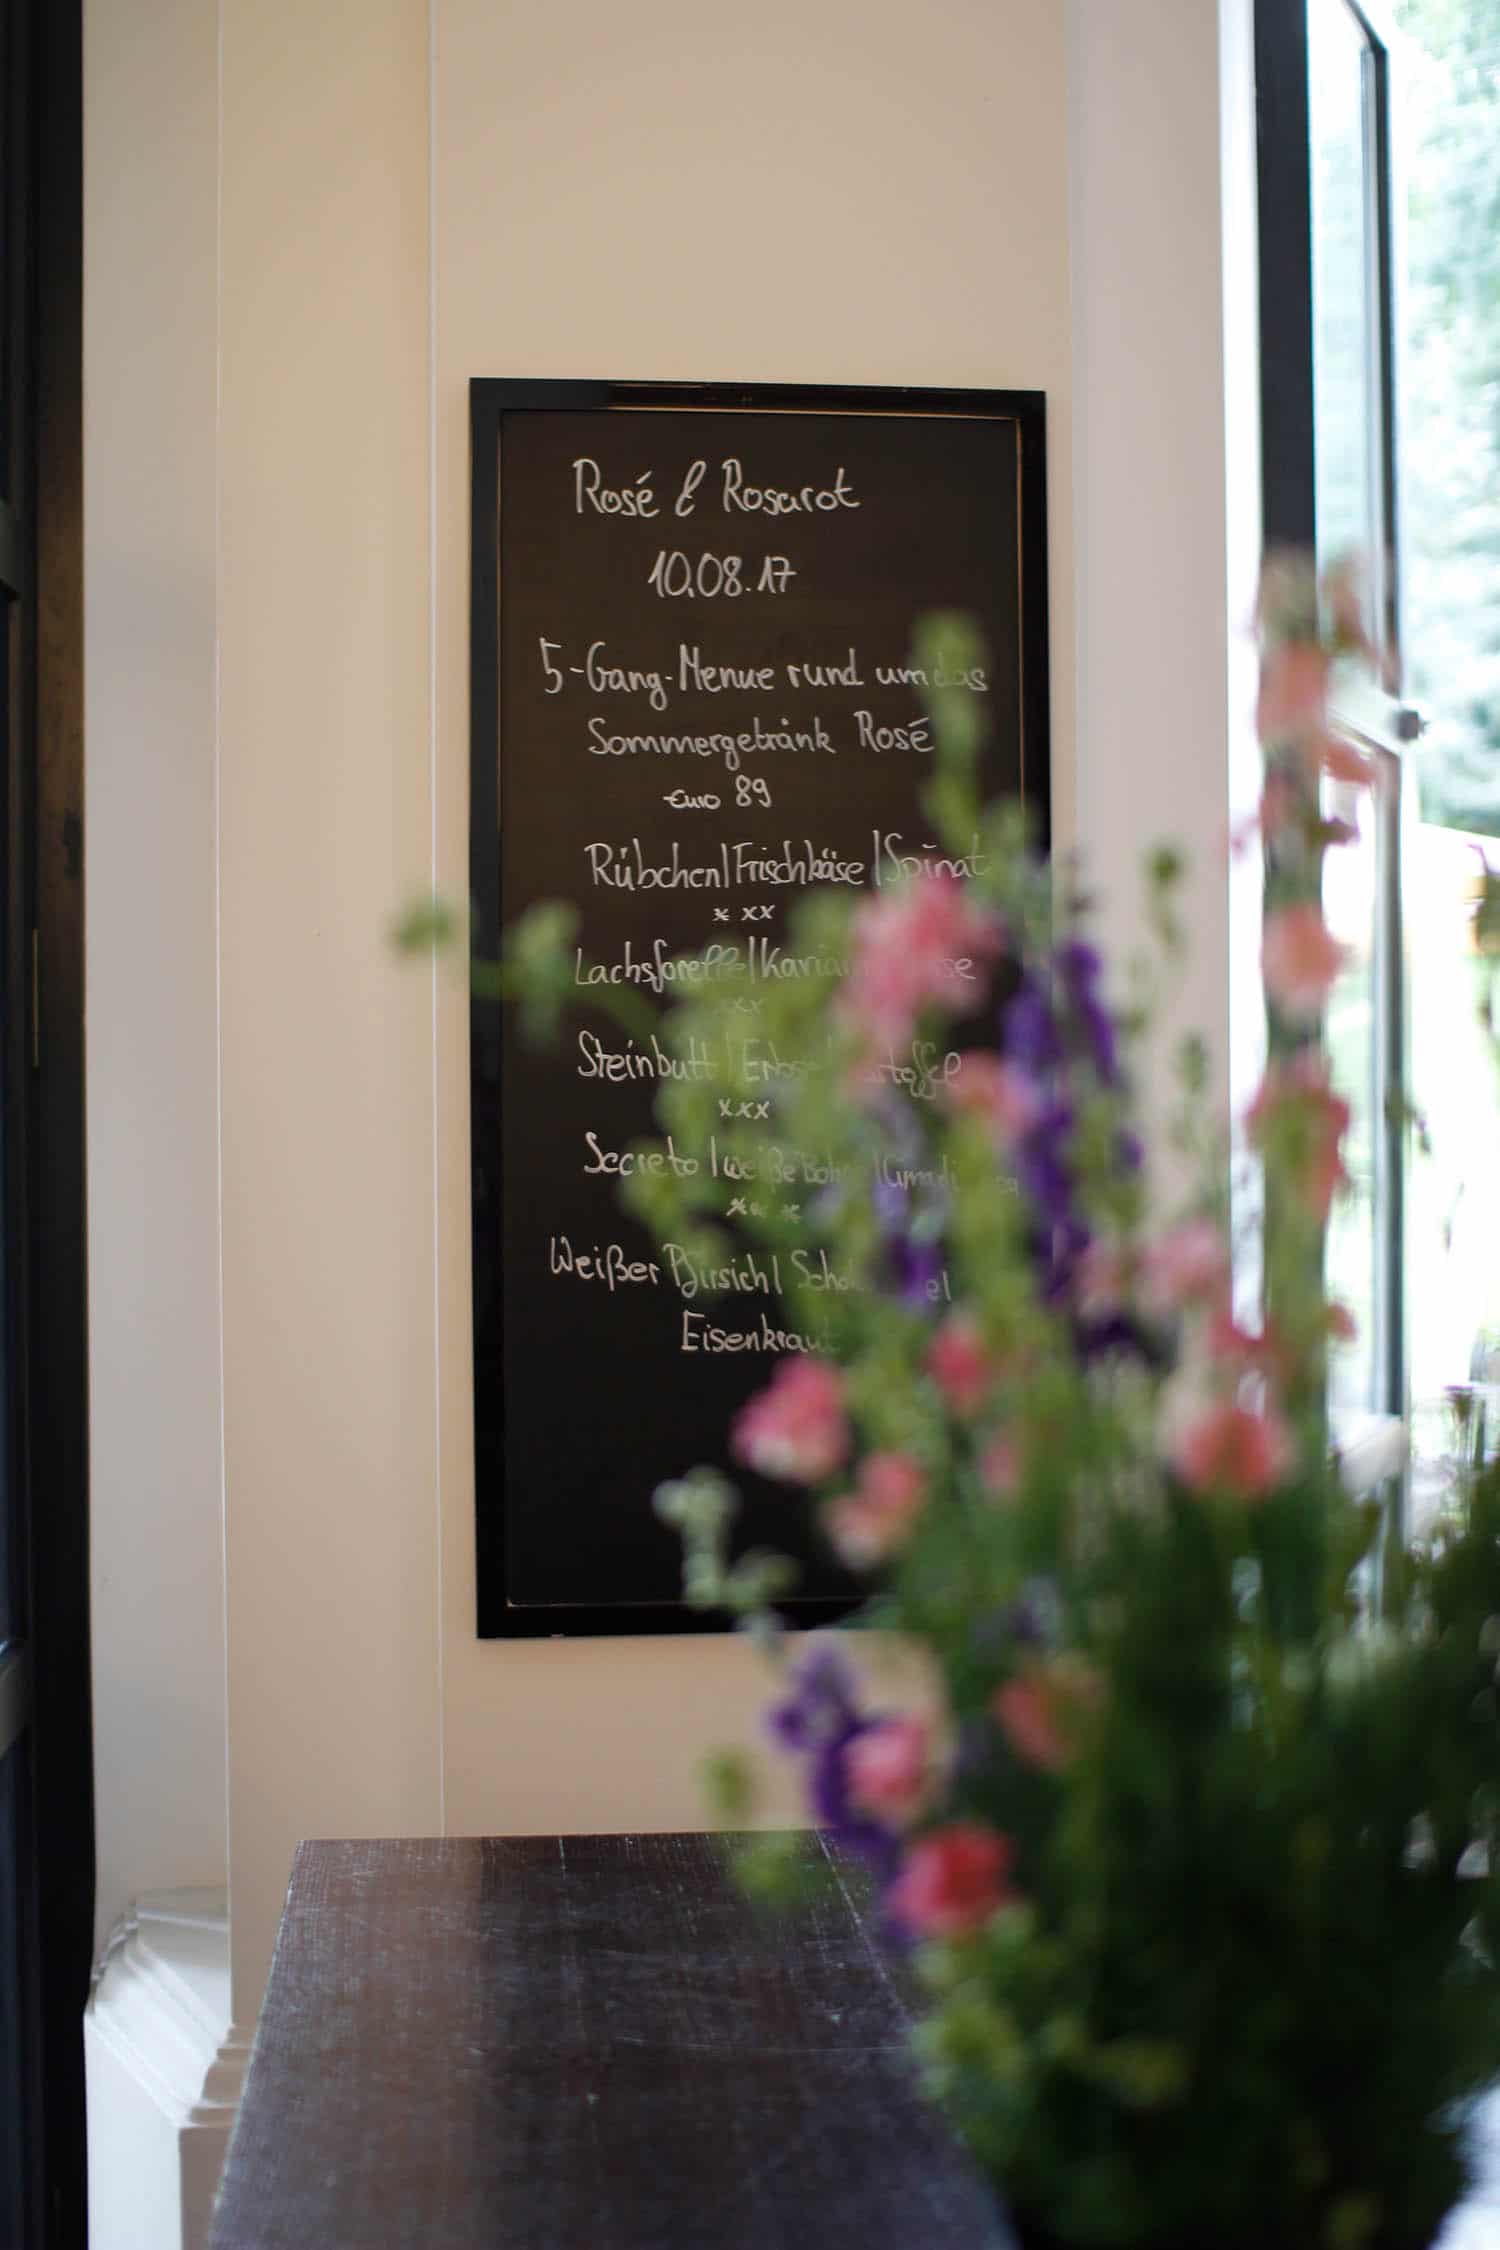 Rosé & Rosarot
10.08.17
5-Gang-Menue rund um das
Sommergetränk Rosé
Euro 89
Rübchen|Frischkäse|Spinat
xxx
Lachsforelle|
xxx
Steinbutt|Erbse
xxx
Secreto|weiße Bohne|
xxx
Weißer Pfirsich|
Eisenkraut